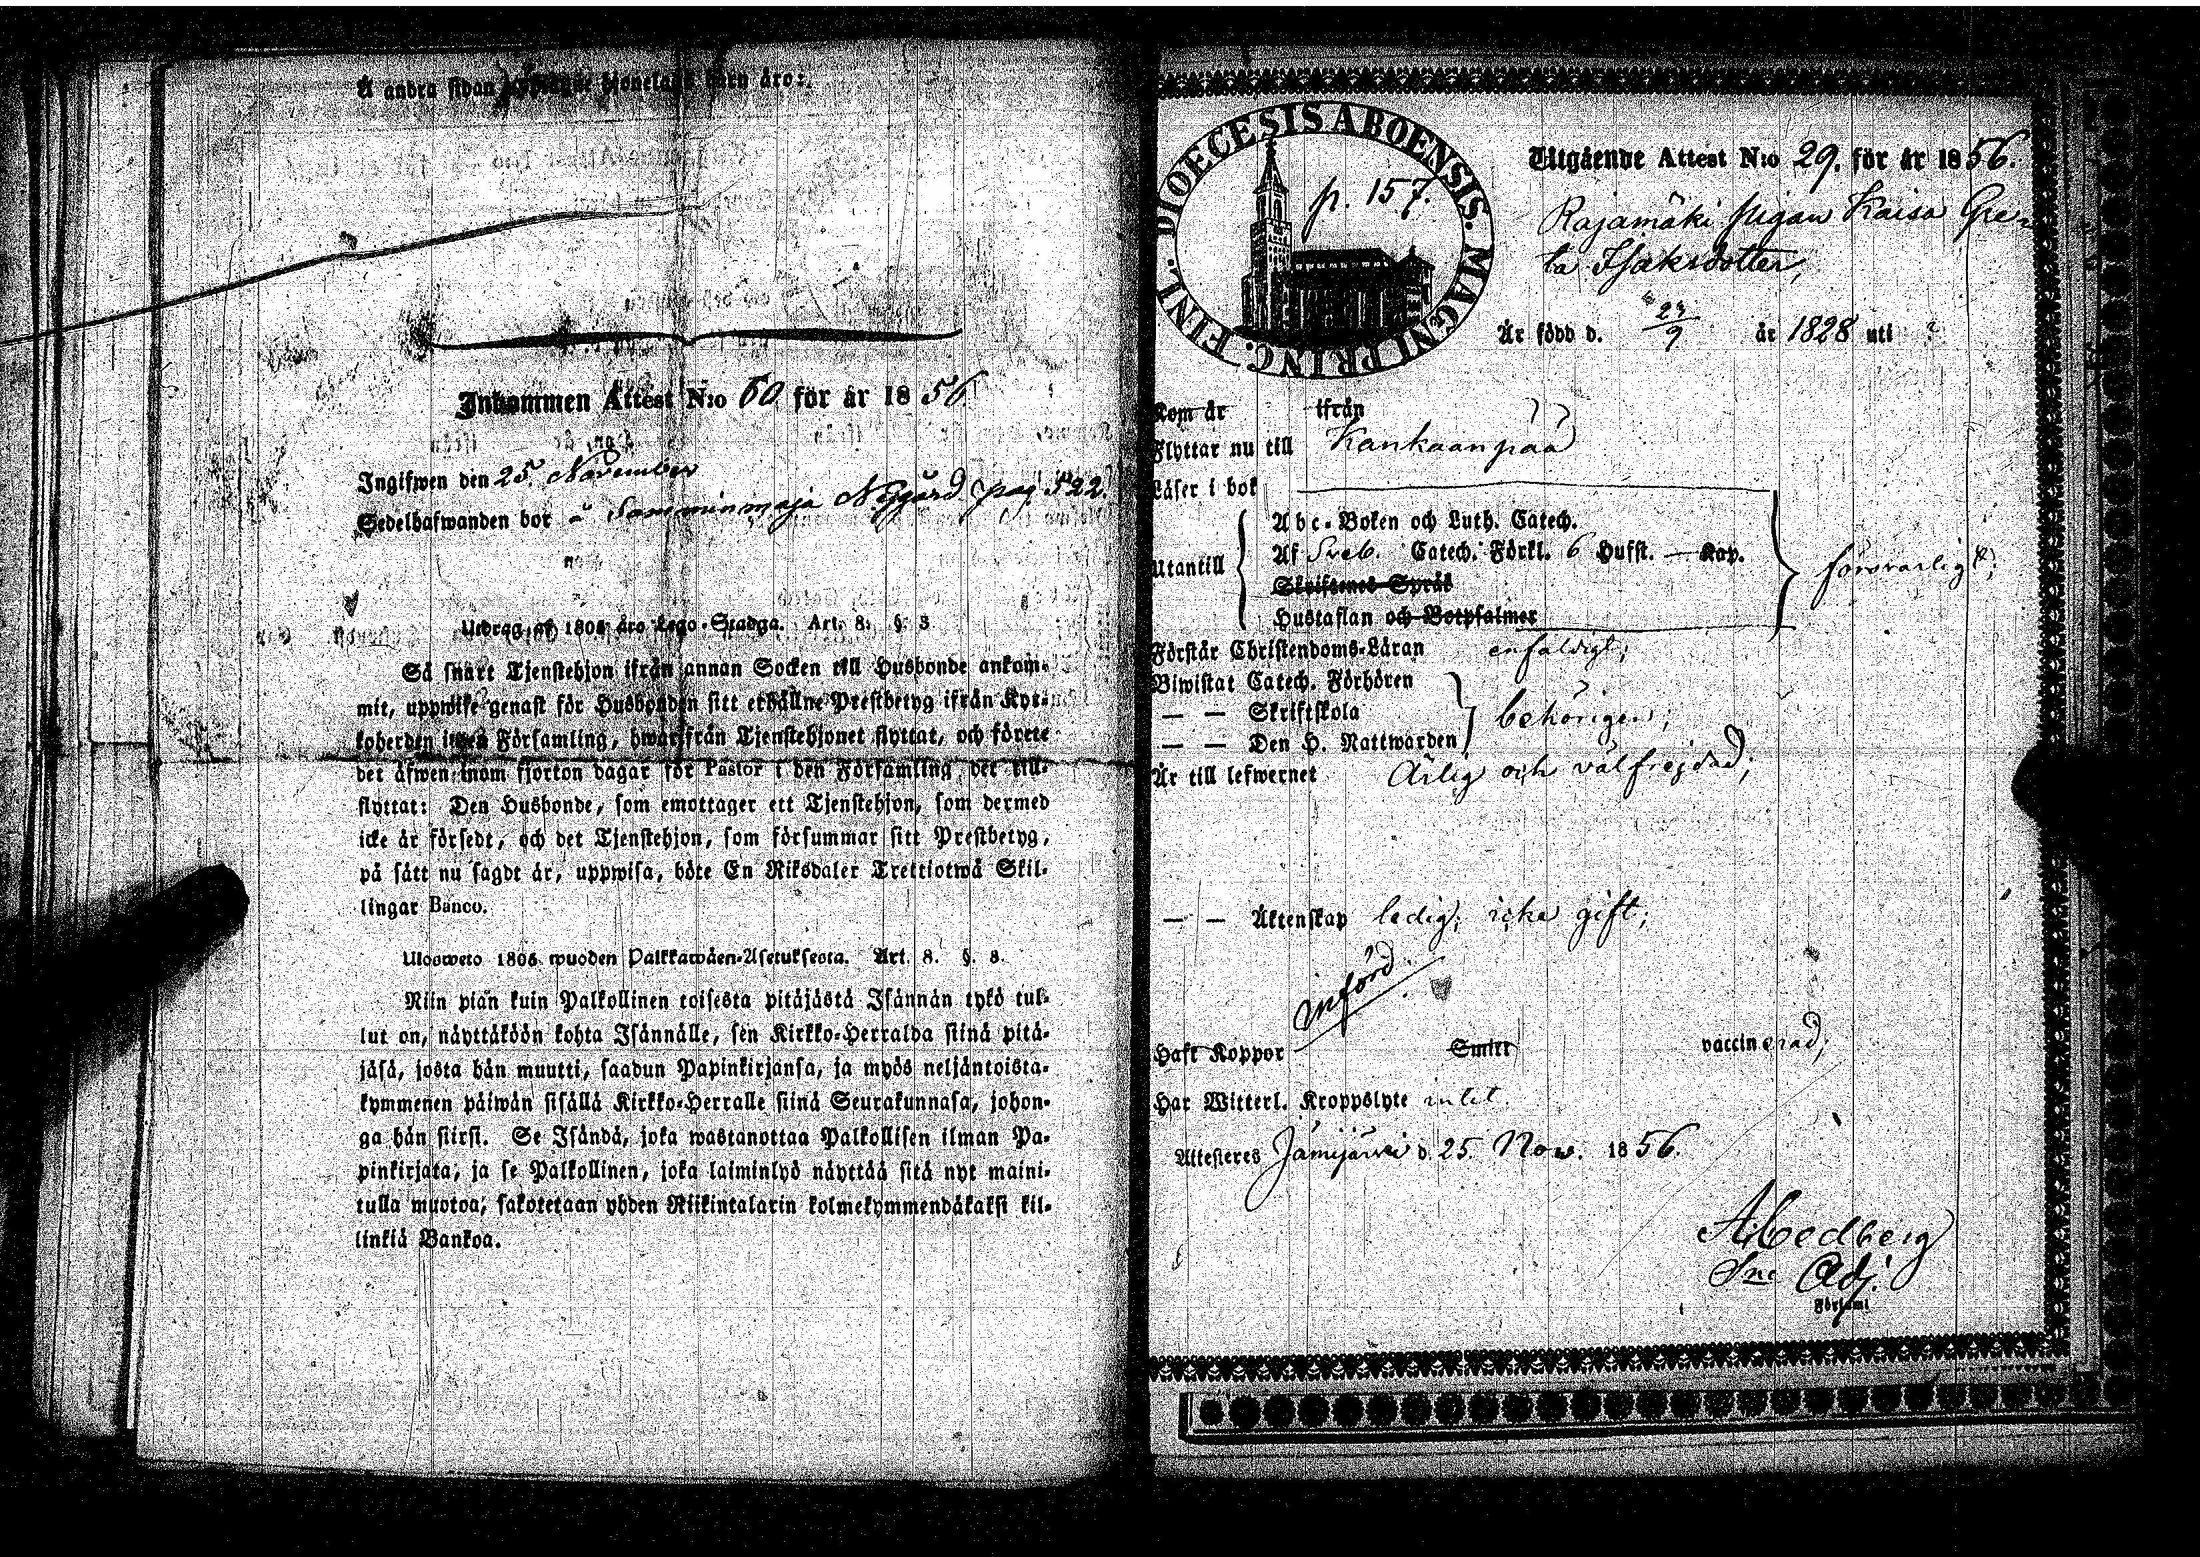 Å andra sidan
Inkommen Attest N:o 60 för år 1856.
Ingifwen den 25 November
Sedelhafwanden bor å Samminmaja Nygård pag 522.
Utdrag af 1805 års Lego-Stadga. Art. 8. § 3
Så snart Tjenstehjon ifrån annan Socken till Husbonde ankom-
mit, uppwise genast för Husbonden sitt erhållne Prestbetyg ifrån Kyr-
koherden i den Församling, hwarifrån Tjenstehjonet flyttat, och förete
det äfwen inom fjorton dagar för Pastor i den Församling det till-
flyttat: Den Husbonde, som emottager ett Tjenstehjon, som dermed
icke är försedt, och det Tjenstehjon, som försummar sitt Prestbetyg,
på sätt nu sagdt är, uppwisa, böte En Riksdaler Trettiotwå Skil-
lingar Banco.
Ulosweto 1805 wuoden Palkkawäen-Asetuksesta. Art. 8. §. 3.
Niin pian kuin Palkollinen toisesta pitäjästä Isännän tykö tul-
lut on, näyttäköön kohta Isännälle, sen Kirkko-Herralda siinä pitä-
jäsä, josta hän muutti, saadun Papinkirjansa, ja myös neljäntoista-
kymmenen päiwän sisällä Kirkko-Herralle siinä Seurakunnasa, johon-
ga hän siirsi. Se Isändä, joka wastanottaa Palkollisen ilman Pa-
pinkirjata, ja se Palkollinen, joka laiminlyö näyttää sitä nyt maini-
tulla muotoa, sakotetaan yhden Riikintalarin kolmekymmendäkaksi kil-
linkiä Bankoa.
DIOECESIS ABOENSIS. MAGNI PRINC. FINL.
p. 157.
Utgående Attest N:o 29. för år 1856.
Rajamäki pigan Kaisa Gre-
ta Isaksdotter,
Är född d. 23/9 år 1828 uti ?
Kom år ifrån
Flyttar nu till Kankaanpää
Läser i bok
Utantill
Abc-Boken och Luth. Catech.
Af Sveb. Catech. Förkl. 6 Hufst. — Kap.
Skriftenes Språk
Hustaflan och Botpsalmer
försvarligt;
Förstår Christendoms-Läran enfaldigt;
Biwistat Catech. Förhören
— — Skriftskola
— — Den H. Nattwarden
behörigen;
Är till lefwernet Ärlig och välfrejdad;
— — Äktenskap ledig; icke gift;
införd.
Haft Koppor Smitt vaccinerad;
Har Witterl. Kroppslyte intet.
Attesteres Jämijärvi d. 25. Nov. 1856.
A. Hedberg
Adj.
Församl